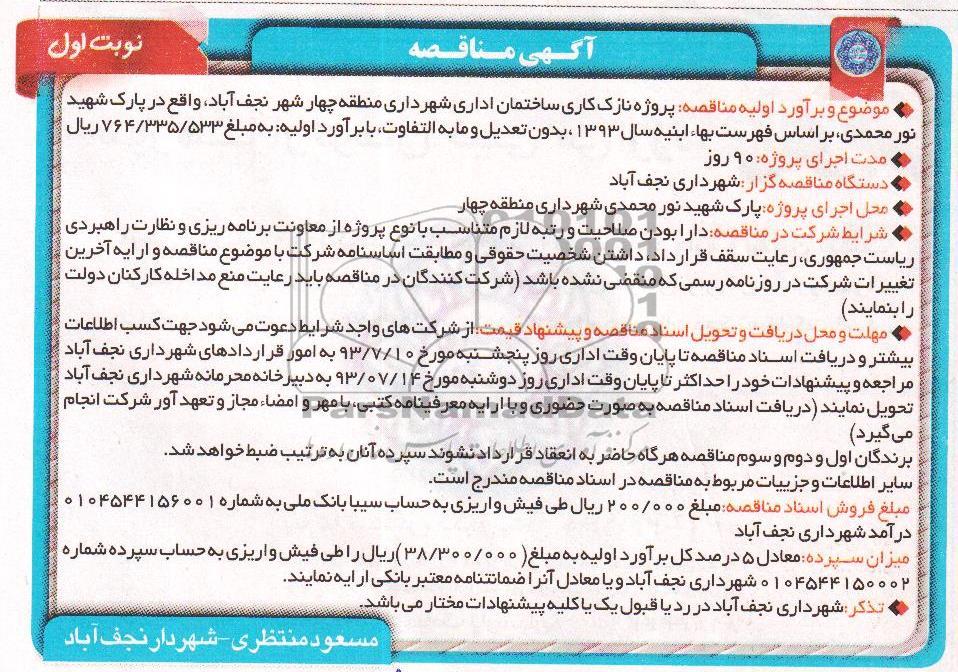 آگهی مناقصه
نوبت اول
موضوع و برآورد اولیه مناقصه: پروژه نازک کاری ساختمان اداری شهرداری منطقه چهار شهر نجف آباد، واقع در پارک شهید
نور محمدی، بر اساس فهرست بهاء ابنیه سال ۱۳۹۳، بدون تعدیل و ما به التفاوت، با برآورد اولیه: به مبلغ ۷۶۴/۳۳۵/۵۳۳ ریال
مدت اجرای پروژه: ۹۰ روز
دستگاه مناقصه گزار: شهرداری نجف آباد
محل اجرای پروژه: پارک شهید نور محمدی شهرداری منطقه چهار
شرایط شرکت در مناقصه: دارا بودن صلاحیت و رتبه لازم متناسب با نوع پروژه از معاونت برنامه ریزی و نظارت راهبردی
ریاست جمهوری، رعایت سقف قرارداد، داشتن شخصیت حقوقی و مطابقت اساسنامه شرکت با موضوع مناقصه و ارایه آخرین
تغییرات شرکت در روزنامه رسمی که منقضی نشده باشد (شرکت کنندگان در مناقصه باید رعایت منع مداخله کارکنان دولت
را بنمایند)
مهلت و محل دریافت و تحویل اسناد مناقصه و پیشنهاد قیمت: از شرکت های واجد شرایط دعوت می شود جهت کسب اطلاعات
بیشتر و دریافت اسناد مناقصه تا پایان وقت اداری روز پنجشنبه مورخ ۹۳/۷/۱۰ به امور قراردادهای شهرداری نجف آباد
مراجعه و پیشنهادات خود را حداکثر تا پایان وقت اداری روز دوشنبه مورخ ۹۳/۰۷/۱۴ به دبیرخانه محرمانه شهرداری نجف آباد
تحویل نمایند (دریافت اسناد مناقصه به صورت حضوری و با ارایه معرفینامه کتبی، با مهر و امضاء مجاز و تعهد آور شرکت انجام
می گیرد)
برندگان اول و دوم و سوم مناقصه هر گاه حاضر به انعقاد قرارداد نشوند سپرده آنان به ترتیب ضبط خواهد شد.
سایر اطلاعات و جزییات مربوط به مناقصه در اسناد مناقصه مندرج است.
مبلغ فروش اسناد مناقصه: مبلغ ۲۰۰/۰۰۰ ریال طی فیش واریزی به حساب سیبا بانک ملی به شماره ۰۱۰۴۵۴۴۱۵۶۰۰۱
درآمد شهرداری نجف آباد
میزان سپرده: معادل ۵ درصد کل برآورد اولیه به مبلغ (۳۸/۳۰۰/۰۰۰) ریال را طی فیش واریزی به حساب سپرده شماره
۰۱۰۴۵۴۴۱۵۰۰۰۲ شهرداری نجف آباد و یا معادل آنرا ضمانتنامه معتبر بانکی ارایه نمایند.
تذکر: شهرداری نجف آباد در رد یا قبول یک یا کلیه پیشنهادات مختار می باشد.
مسعود منتظری - شهردار نجف آباد
ParsNamadData